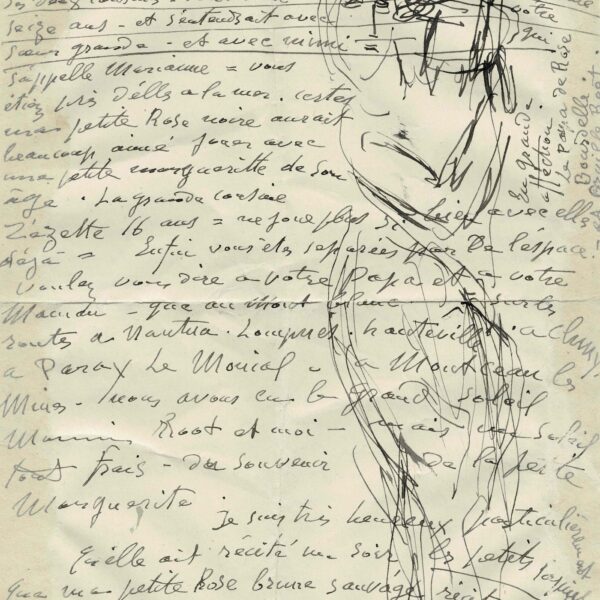 seize ans - et s'entendrait avec
sœur grande - et avec mimi =
s'appelle Marianne = vous
étiez près d'elles a la mer. certes
ma petite Rose noire aurait
beaucoup aimé jouer avec
une petite margueritte de son
âge. La grande cousine
Zézette 16 ans = ne joue plus si bien avec elles
déjà = Enfin vous êtes séparées par De l'espace.
voulez vous dire a votre Papa et a votre
Maman - que au mont blanc sur les
routes a Nantua. Lompnes. hauteville. a cluny
a Paray Le Monial - a Montceau les
Mines - nous avons eu le grand soleil
Mamin Root et moi - mais un soleil
tout frais - du souvenir De la petite
Marguerite
je suis très heureux particulièrement
qu'elle ait récité un soir les petits
que ma petite Rose brune sauvage récit
votre
qui
En grande
affection
Le papa de Rose
Bourdelle.